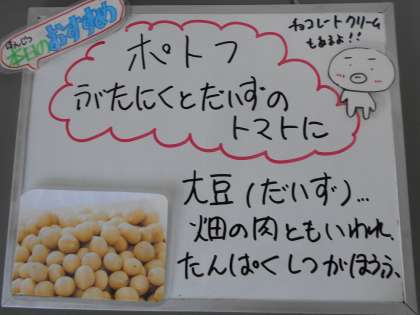 ほんじつ
本日のおすすめ
チョコレートクリーム
もあるよ!!
ポトフ
ぶたにくとだいずの
トマトに
大豆(だいず)...
畑の肉ともいわれ、
たんぱくしつがほうふ、